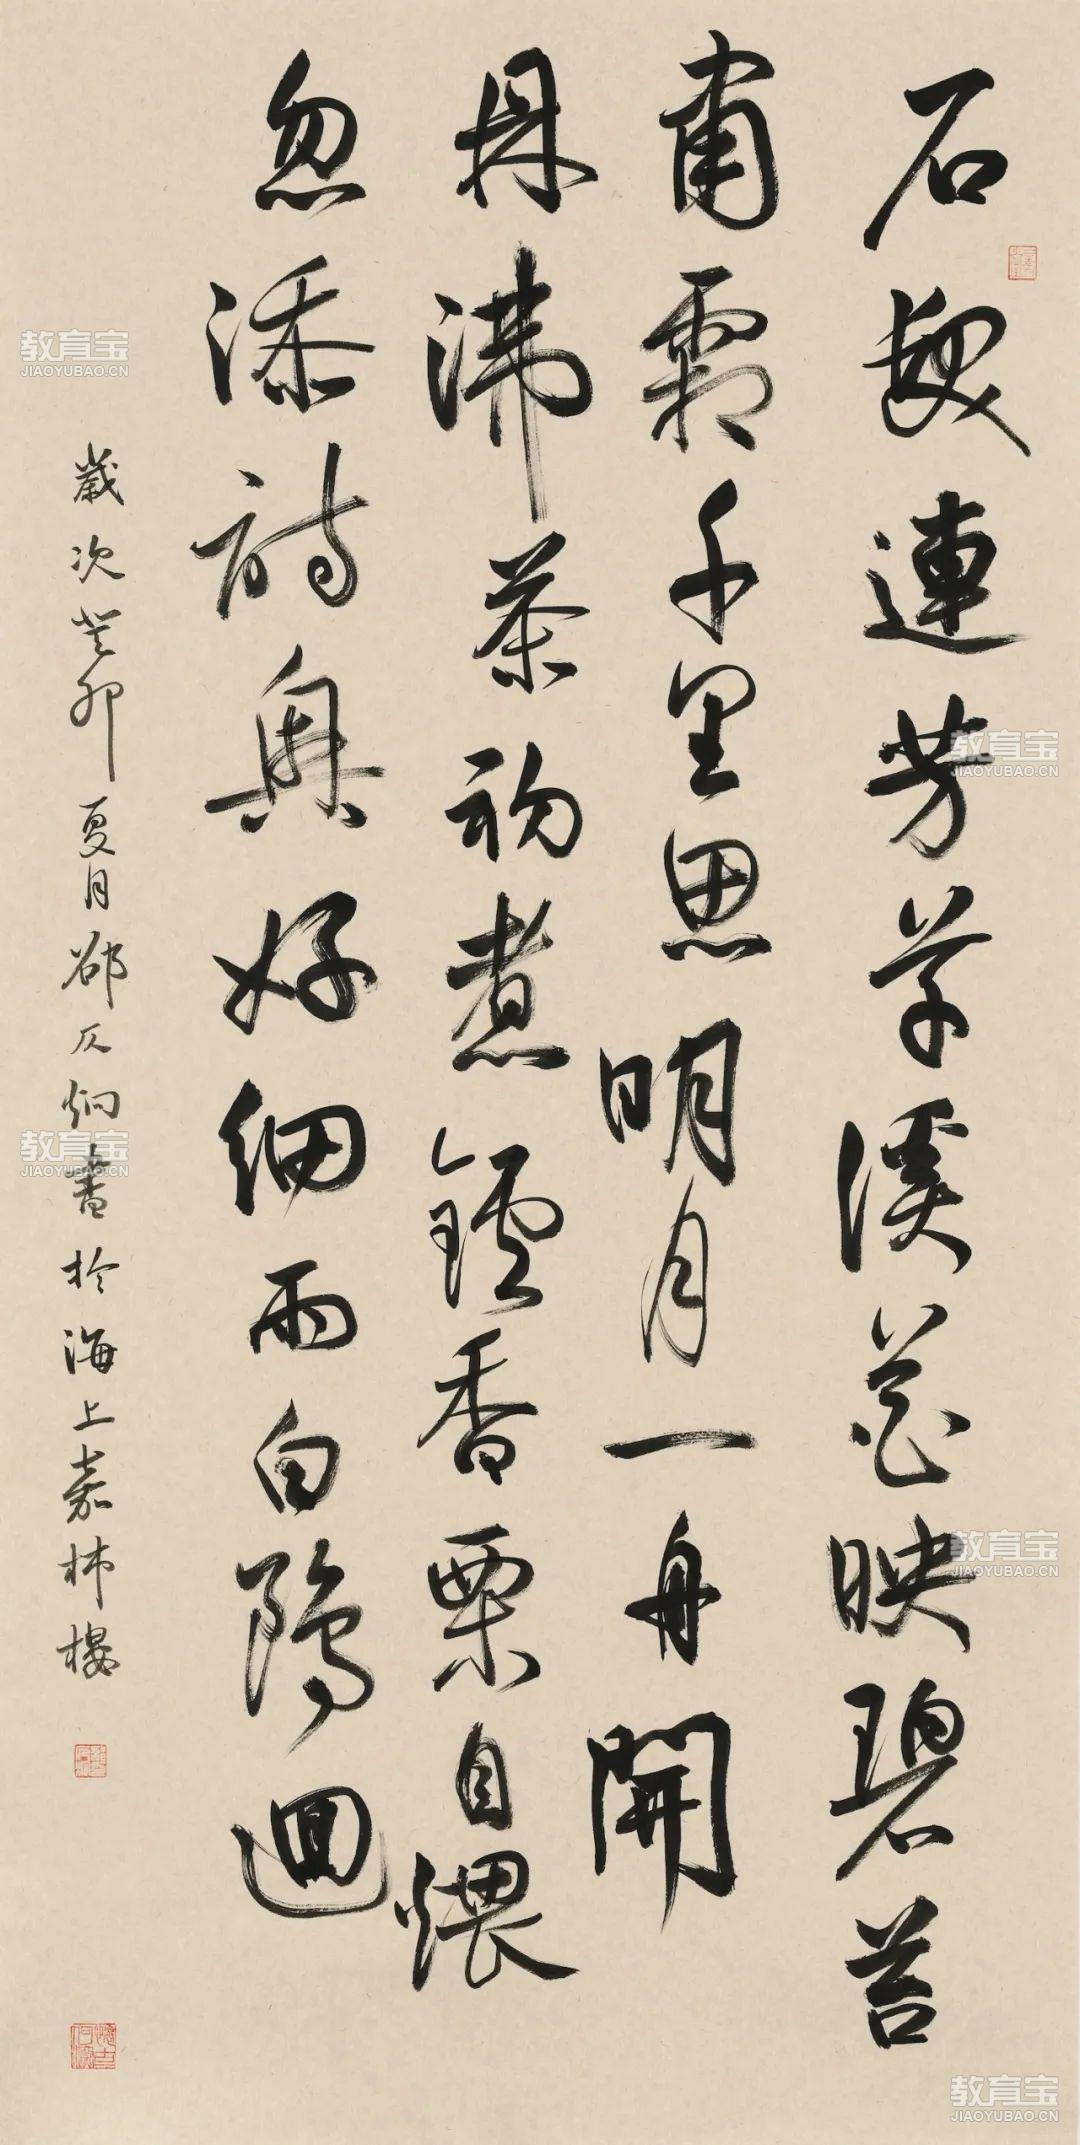 石髮連芳草溪花映碧苔
霜千里思明月一舟開
鼎沸茶初煮鑪香栗自煨
忽添詩興好細雨白鷗迴
歲次癸卯夏月邵仄炯書於海上嘉林樓
教育宝
JIAOYUBAO.CN
教育宝
JIAOYUBAO.CN
教育宝
JIAOYUBAO.CN
教育宝
JIAOYUBAO.CN
教育宝
JIAOYUBAO.CN